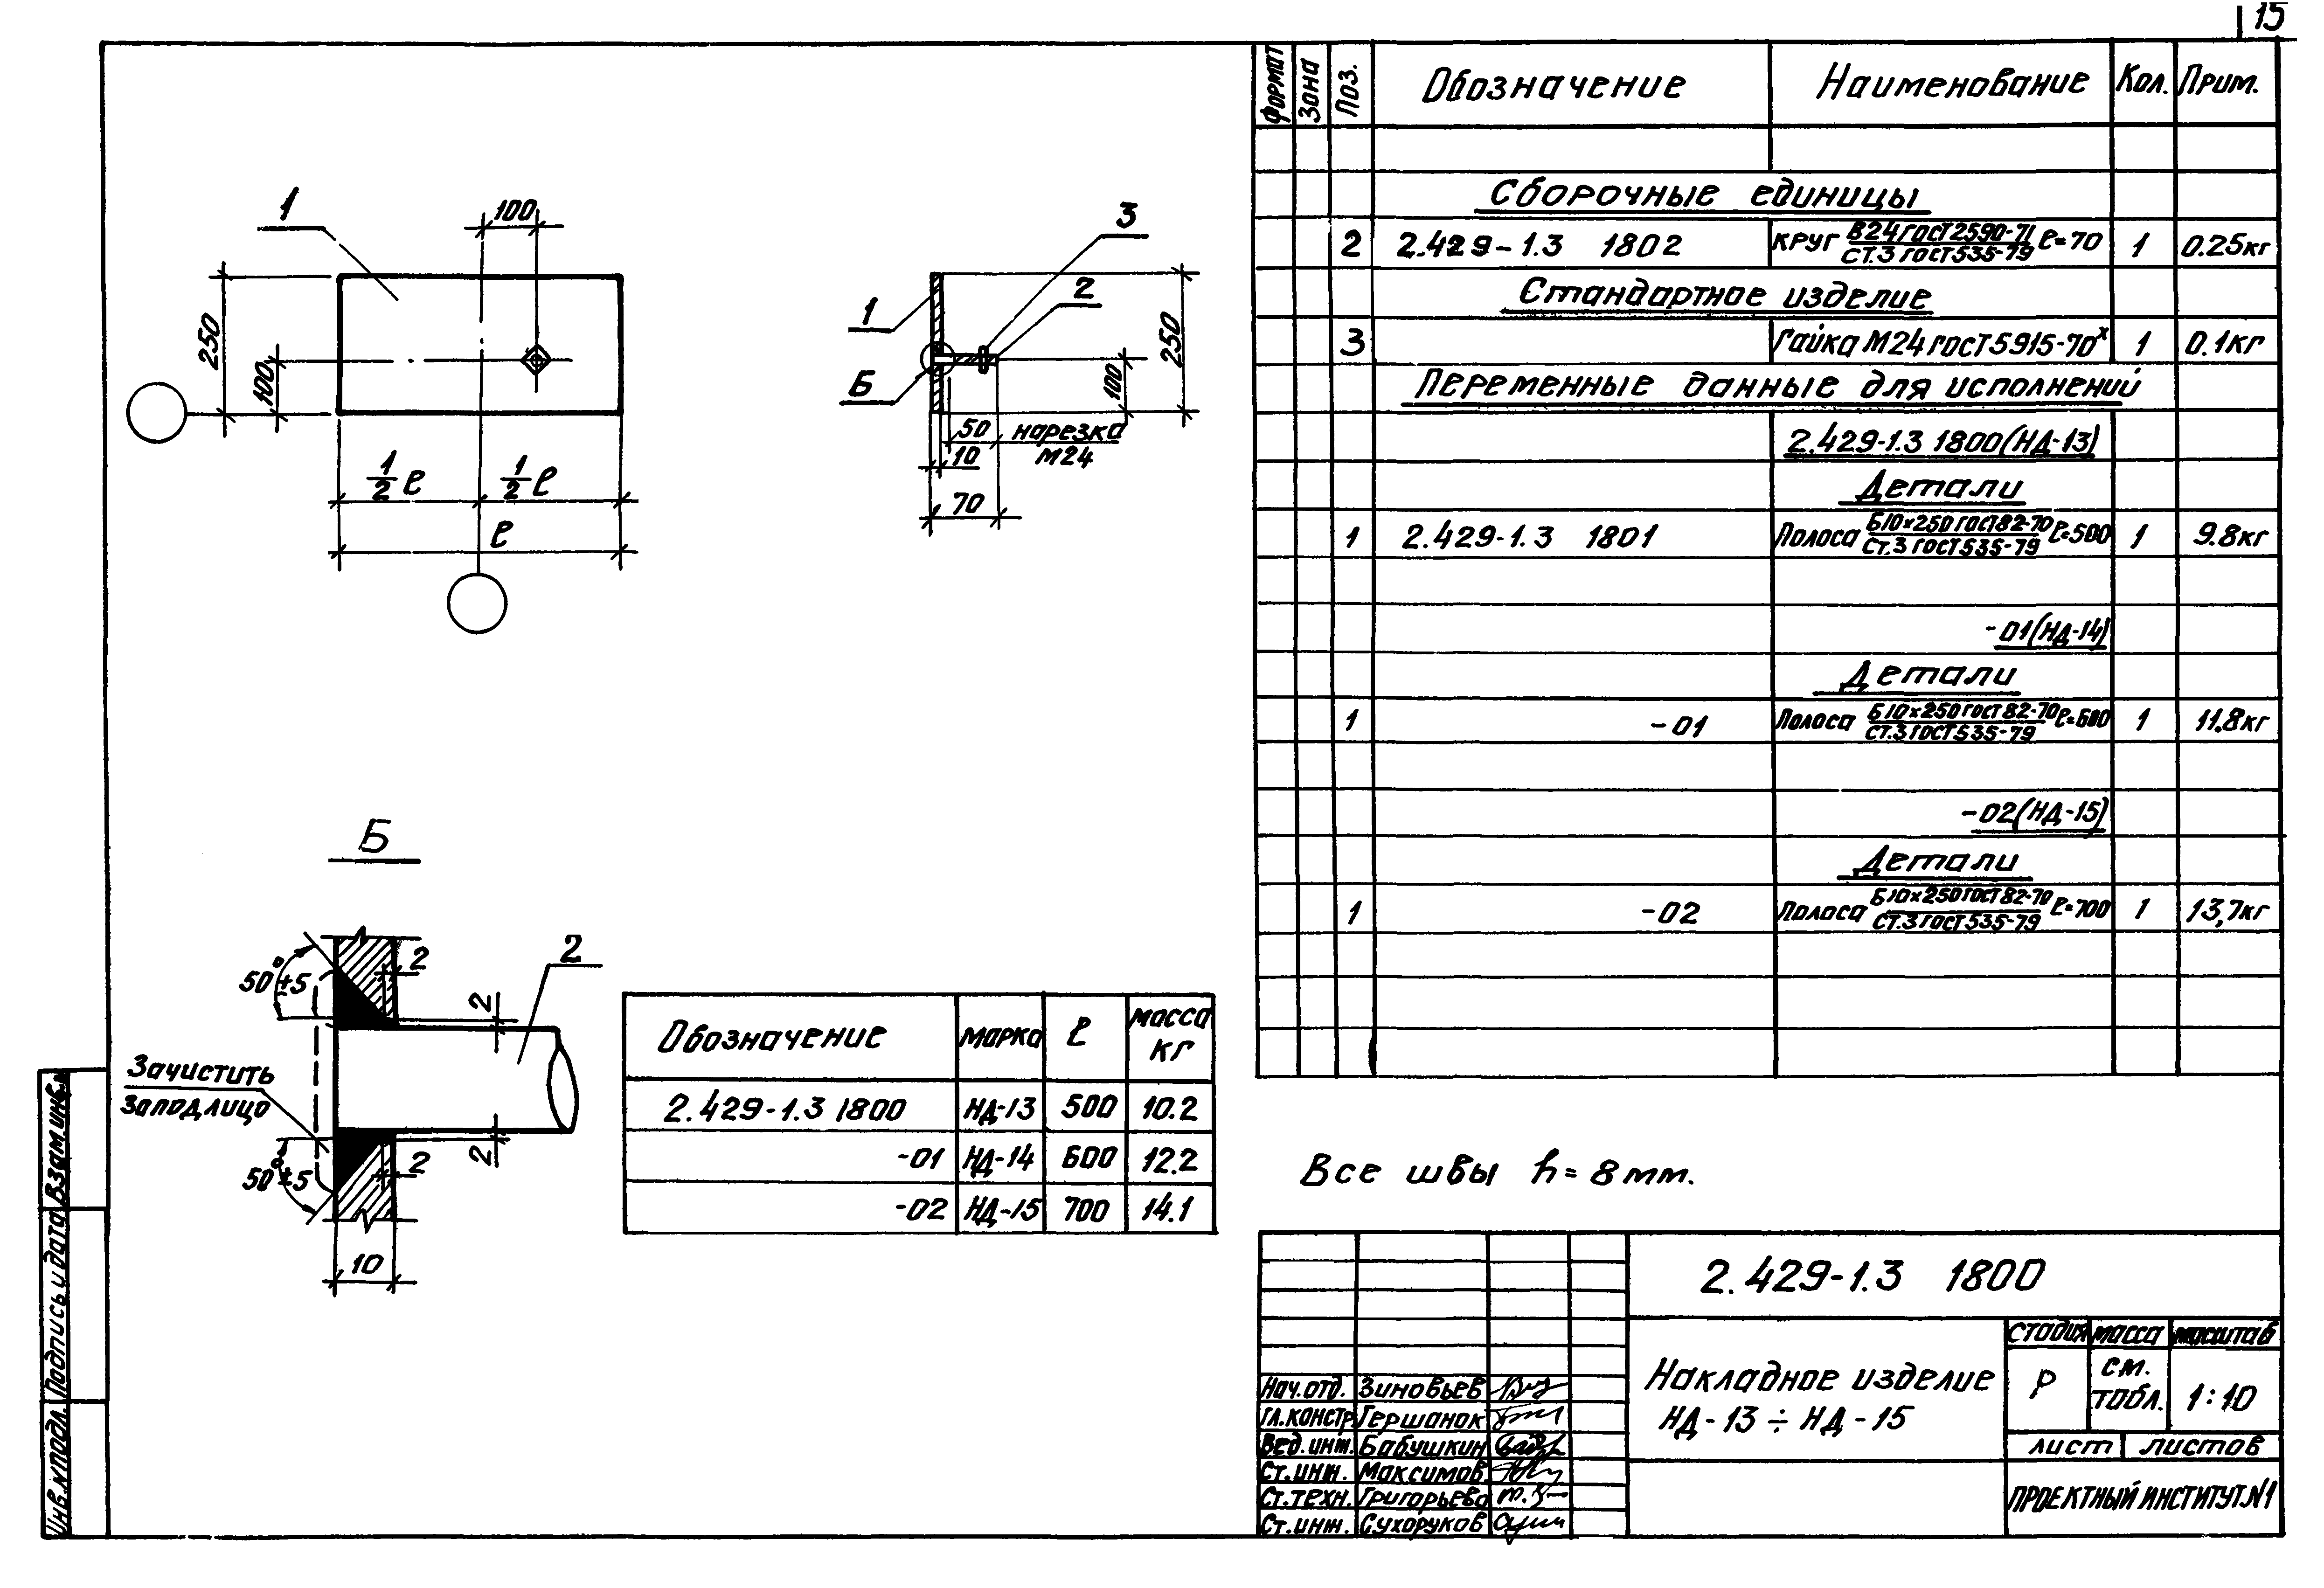 15
1
100
250
100
1/2 ℓ
1/2 ℓ
ℓ
3
2
1
Б
250
100
50
нарезка
М24
10
70
Б
2
50°±5
2
2
Зачистить
Заподлицо
50°±5
2
2
10
Обозначение марка ℓ масса кг
2.429-1.3 1800 НД-13 500 10.2
-01 НД-14 600 12.2
-02 НД-15 700 14.1
Формат Зона Поз. Обозначение Наименование Кол. Прим.
Сборочные единицы
2 2.429-1.3 1802 круг В24 ГОСТ 2590-71 / Ст.3 ГОСТ 535-79 ℓ=70 1 0.25кг
Стандартное изделие
3 Гайка М24 ГОСТ 5915-70х 1 0.1кг
Переменные данные для исполнений
2.429-1.3 1800(НД-13)
Детали
1 2.429-1.3 1801 Полоса Б10×250 ГОСТ 82-70 / Ст.3 ГОСТ 535-79 ℓ=500 1 9.8кг
-01(НД-14)
Детали
1 -01 Полоса Б10×250 ГОСТ 82-70 / Ст.3 ГОСТ 535-79 ℓ=600 1 11.8кг
-02(НД-15)
Детали
1 -02 Полоса Б10×250 ГОСТ 82-70 / Ст.3 ГОСТ 535-79 ℓ=700 1 13,7кг
Все швы h=8мм.
2.429-1.3 1800
Накладное изделие
НД-13 ÷ НД-15
стадия масса масштаб
Р см. табл. 1:10
лист листов
ПРОЕКТНЫЙ ИНСТИТУТ №1
Нач.отд. Зиновьев
Гл.констр. Гершанок
Вед.инж. Бабушкин
Ст.инж. Максимов
Ст.техн. Григорьева
Ст.инж. Сухоруков
Взам.инв.№
Подпись и дата
Инв.№подл.